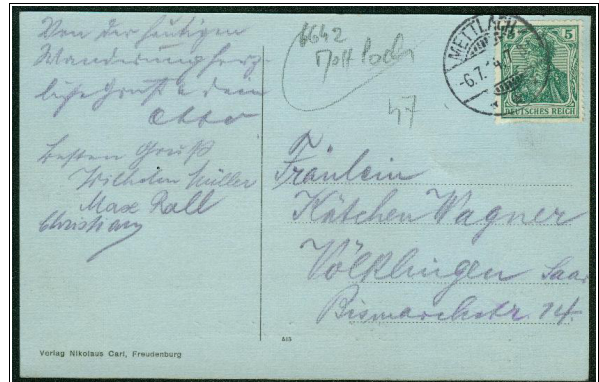 Von der heutigen
Wanderung herz-
liche Grüße dein
Otto
Besten Gruß
Wilhelm Müller
Max Roll
Christian
6642
47
METTLACH
-6.7.
5
DEUTSCHES REICH
Fräulein
Kätchen Wagner
Völklingen Saar
Bismarckstr. 14.
513
Verlag Nikolaus Carl, Freudenburg